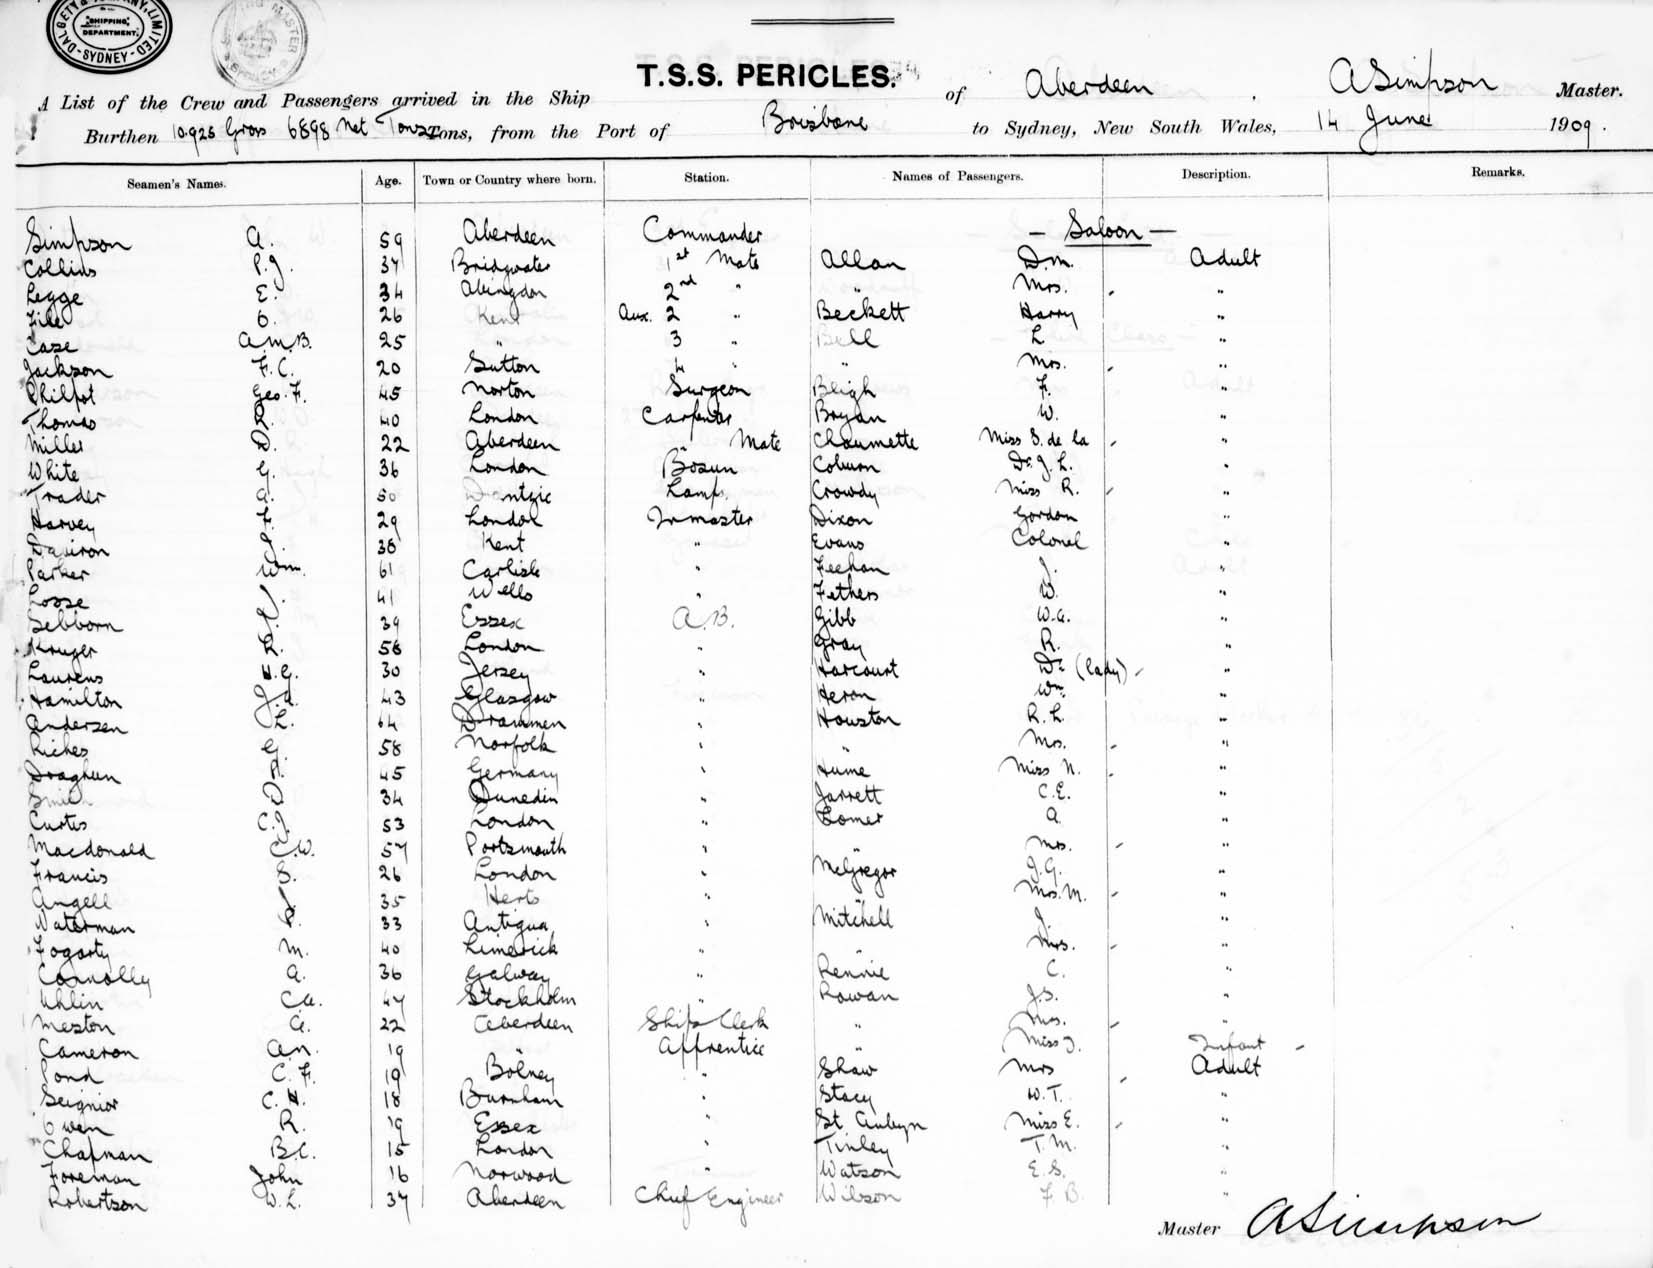 DALGETY & COMPANY, LIMITED
SHIPPING
DEPARTMENT.
SYDNEY
T.S.S. PERICLES.
A List of the Crew and Passengers arrived in the Ship of Aberdeen . A Simpson Master.
Burthen 10.925 Gross 6898 Net Tons Tons, from the Port of Brisbane to Sydney, New South Wales, 14 June 1909.
Seamen's Names. Age. Town or Country where born. Station. Names of Passengers. Description. Remarks.
Simpson A. 59 Aberdeen Commander - Saloon -
Collins P.J. 37 Bridgwater 1st Mate Allan D.M. Adult
Legge E. 34 Abingdon 2nd " " Mrs. "
File O. 26 Kent Aux. 2 " Beckett Harry "
Case A.M.B. 25 " 3 " Bell L "
Jackson F.C. 20 Sutton 4 " " Mrs. "
Philpot Geo. F. 45 Norton Surgeon Bligh F. "
Thomas R. 40 London Carpenter Bryan W. "
Miller D. 22 Aberdeen " Mate Chaumette Miss S. de la "
White G. 36 London Bosun Coburn Dr. J. L. "
Trader A. 50 Dantzic Lamps Crowdy Miss R. "
Harvey F. 29 London Qrmaster Dixon Gordon "
38 Kent " Evans Colonel "
Parker Wm. 61 Carlisle " Feehan J. "
Losse 41 Wells " Fethers W. "
Sebborn 39 Essex A.B. Gibb W.A. "
Kruger R. 58 London " Gray R. "
Laurens H.G. 30 Jersey " Harcourt Dr (lady) "
Hamilton J.A. 43 Glasgow " Heron Wm. "
Andersen L. 64 Drammen " Houston R.L. "
Riches G. 58 Norfolk " " Mrs. "
Draghun 45 Germany " Hume Miss N. "
Smith D. 34 Dunedin " Jarrett C.E. "
Curtis C.J. 53 London " Lomer A. "
Macdonald C.W. 57 Portsmouth " " Mrs. "
Francis S. 26 London " McGregor J.G. "
Angell 35 Herts " " Mrs. M. "
Waterman 33 Antigua " Mitchell J. "
Fogarty M. 40 Limerick " " Mrs. "
Connolly A. 36 Galway " Rennie C. "
Uhlin C.A. 47 Stockholm " Rowan J.S. "
Meston A. 22 Aberdeen Ship's Clerk " Mrs. "
Cameron A.N. 19 " Apprentice " Miss J. Infant
Pond C.F. 19 Bolney " Shaw Mrs Adult
Seignior C.H. 18 Burnham " Stacy W.T. "
Owen R. 19 Essex " St. Aubyn Miss E. "
Chapman B.C. 15 London " Tinley T.M. "
Foreman John 16 Norwood " Watson E.S. "
Robertson W.L. 37 Aberdeen Chief Engineer Wilson F.B. "
Master A Simpson